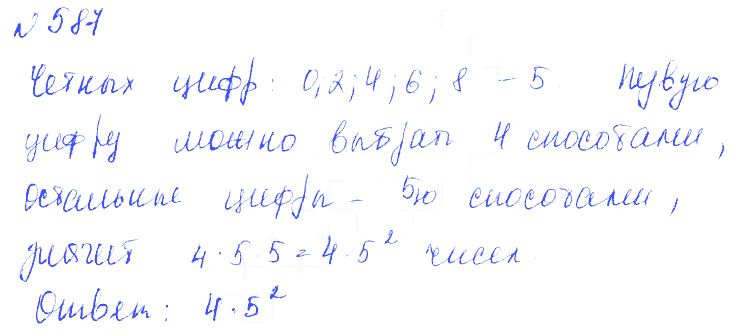 №587
Четных цифр: 0, 2; 4; 6; 8 – 5. Первую
цифру можно выбрать 4 способами,
остальные цифры – 5ю способами,
значит 4·5·5 = 4·5² чисел.
Ответ: 4·5²